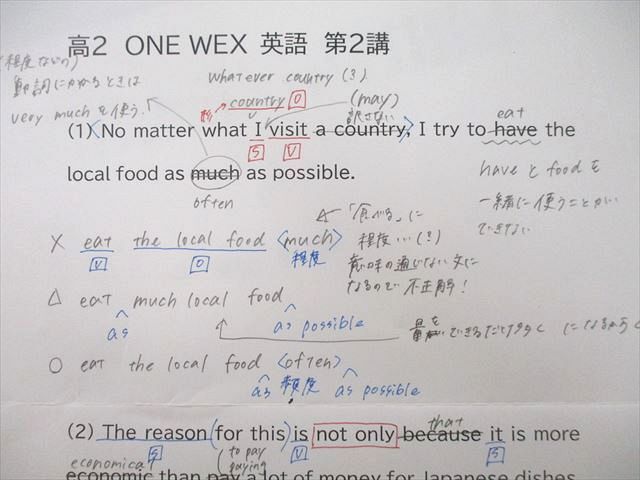 高2 ONE WEX 英語 第2講
(程度ないの)
動詞にかかるときは
very much を使う.
whatever country (?)
形 country O
(may)
訳さない
(1) No matter what I visit a country, I try to have the
S V
eat
local food as much as possible.
often
have と food を
一緒に使うことが
できない
× eat the local food <much>
V O 程度
「食べる」に
程度…(?)
意味の通じない文に
なるので 不正解!
△ eat much local food
as as possible
量を できるだけ多く になるから
○ eat the local food <often>
as 頻度 as possible
(2) The reason (for this) is not only because it is more
that
S V S
economical
(to pay
paying
economic than pay a lot of money for Japanese dishes